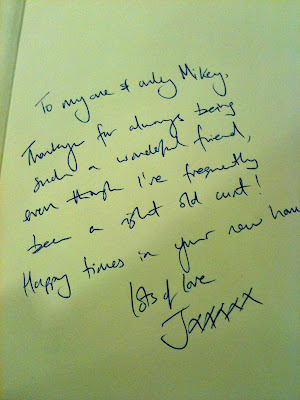 To my one & only Mikey,
Thankyou for always being
such a wonderful friend,
even though I've frequently
been a right old cunt!
Happy times in your new
lots of love
Jxxxxxx